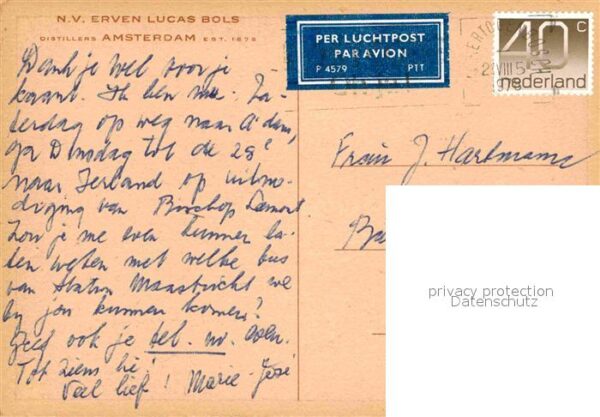 N.V. ERVEN LUCAS BOLS
DISTILLERS AMSTERDAM EST. 1575
PER LUCHTPOST
PAR AVION
P 4579 PTT
40 c
nederland
Dank je wel voor je
kaart. Ik ben nu Za-
terdag op weg naar A'dam,
ga Dinsdag tot de 29e
naar Ierland op uitno-
diging van Bisschop
Zou je me even kunnen la-
ten weten met welke bus
van Station Maastricht we
bij jou kunnen komen?
Geef ook je tel. no. even.
Tot ziens hè!
Veel liefs! Marie-José
Frau J. Hartmann
privacy protection
Datenschutz